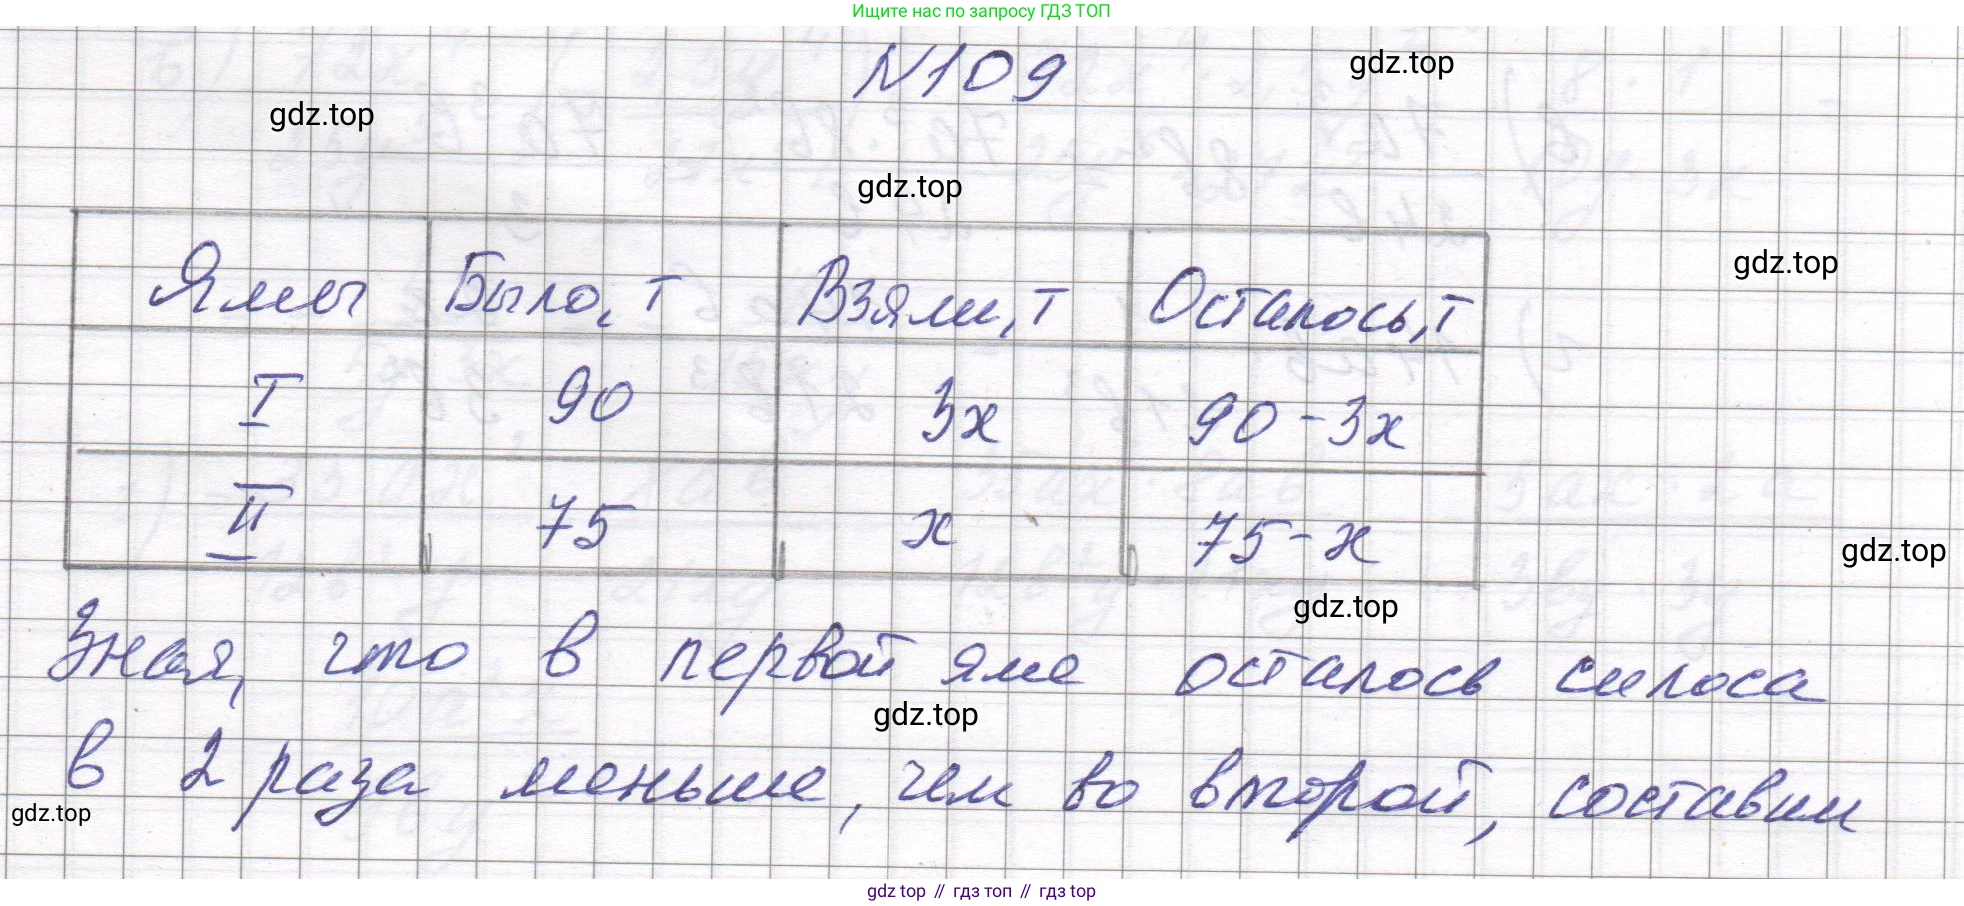 Ищите нас по запросу ГДЗ ТОП
N109
gdz.top
gdz.top
gdz.top
gdz.top
Ямы Было, т Взяли, т Осталось, т
I 90 3x 90-3x
II 75 x 75-x
gdz.top
gdz.top
Зная, что в первой яме осталось силоса
gdz.top
в 2 раза меньше, чем во второй, составим
gdz.top
gdz top // гдз топ // гдз top